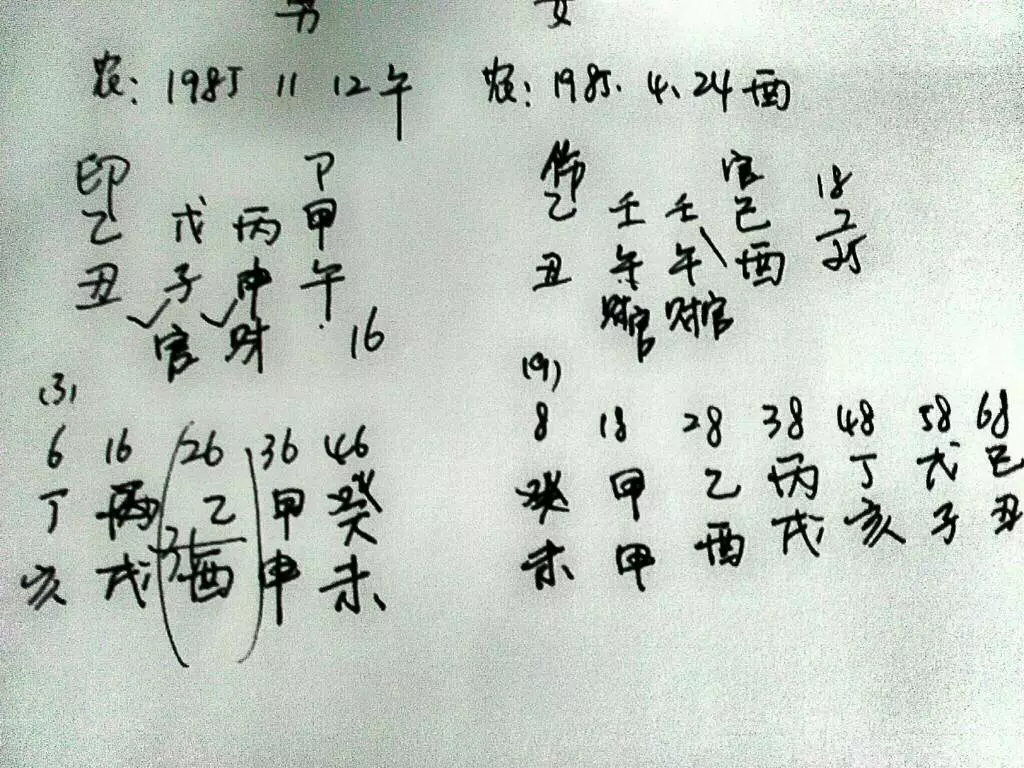 男 女
农: 1985 11 12午 农: 1985. 4. 24酉
印 P 伤 官 18
乙 戊 丙 甲 乙 壬 壬 己 7
丑 子 申 午 丑 午 午 酉 25
官 财 16 财官 财官
(3) (9)
6 16 26 36 46 8 18 28 38 48 58 68
丁 丙 乙 甲 癸 癸 甲 乙 丙 丁 戊 己
亥 戌 酉 申 未 未 甲 酉 戌 亥 子 丑